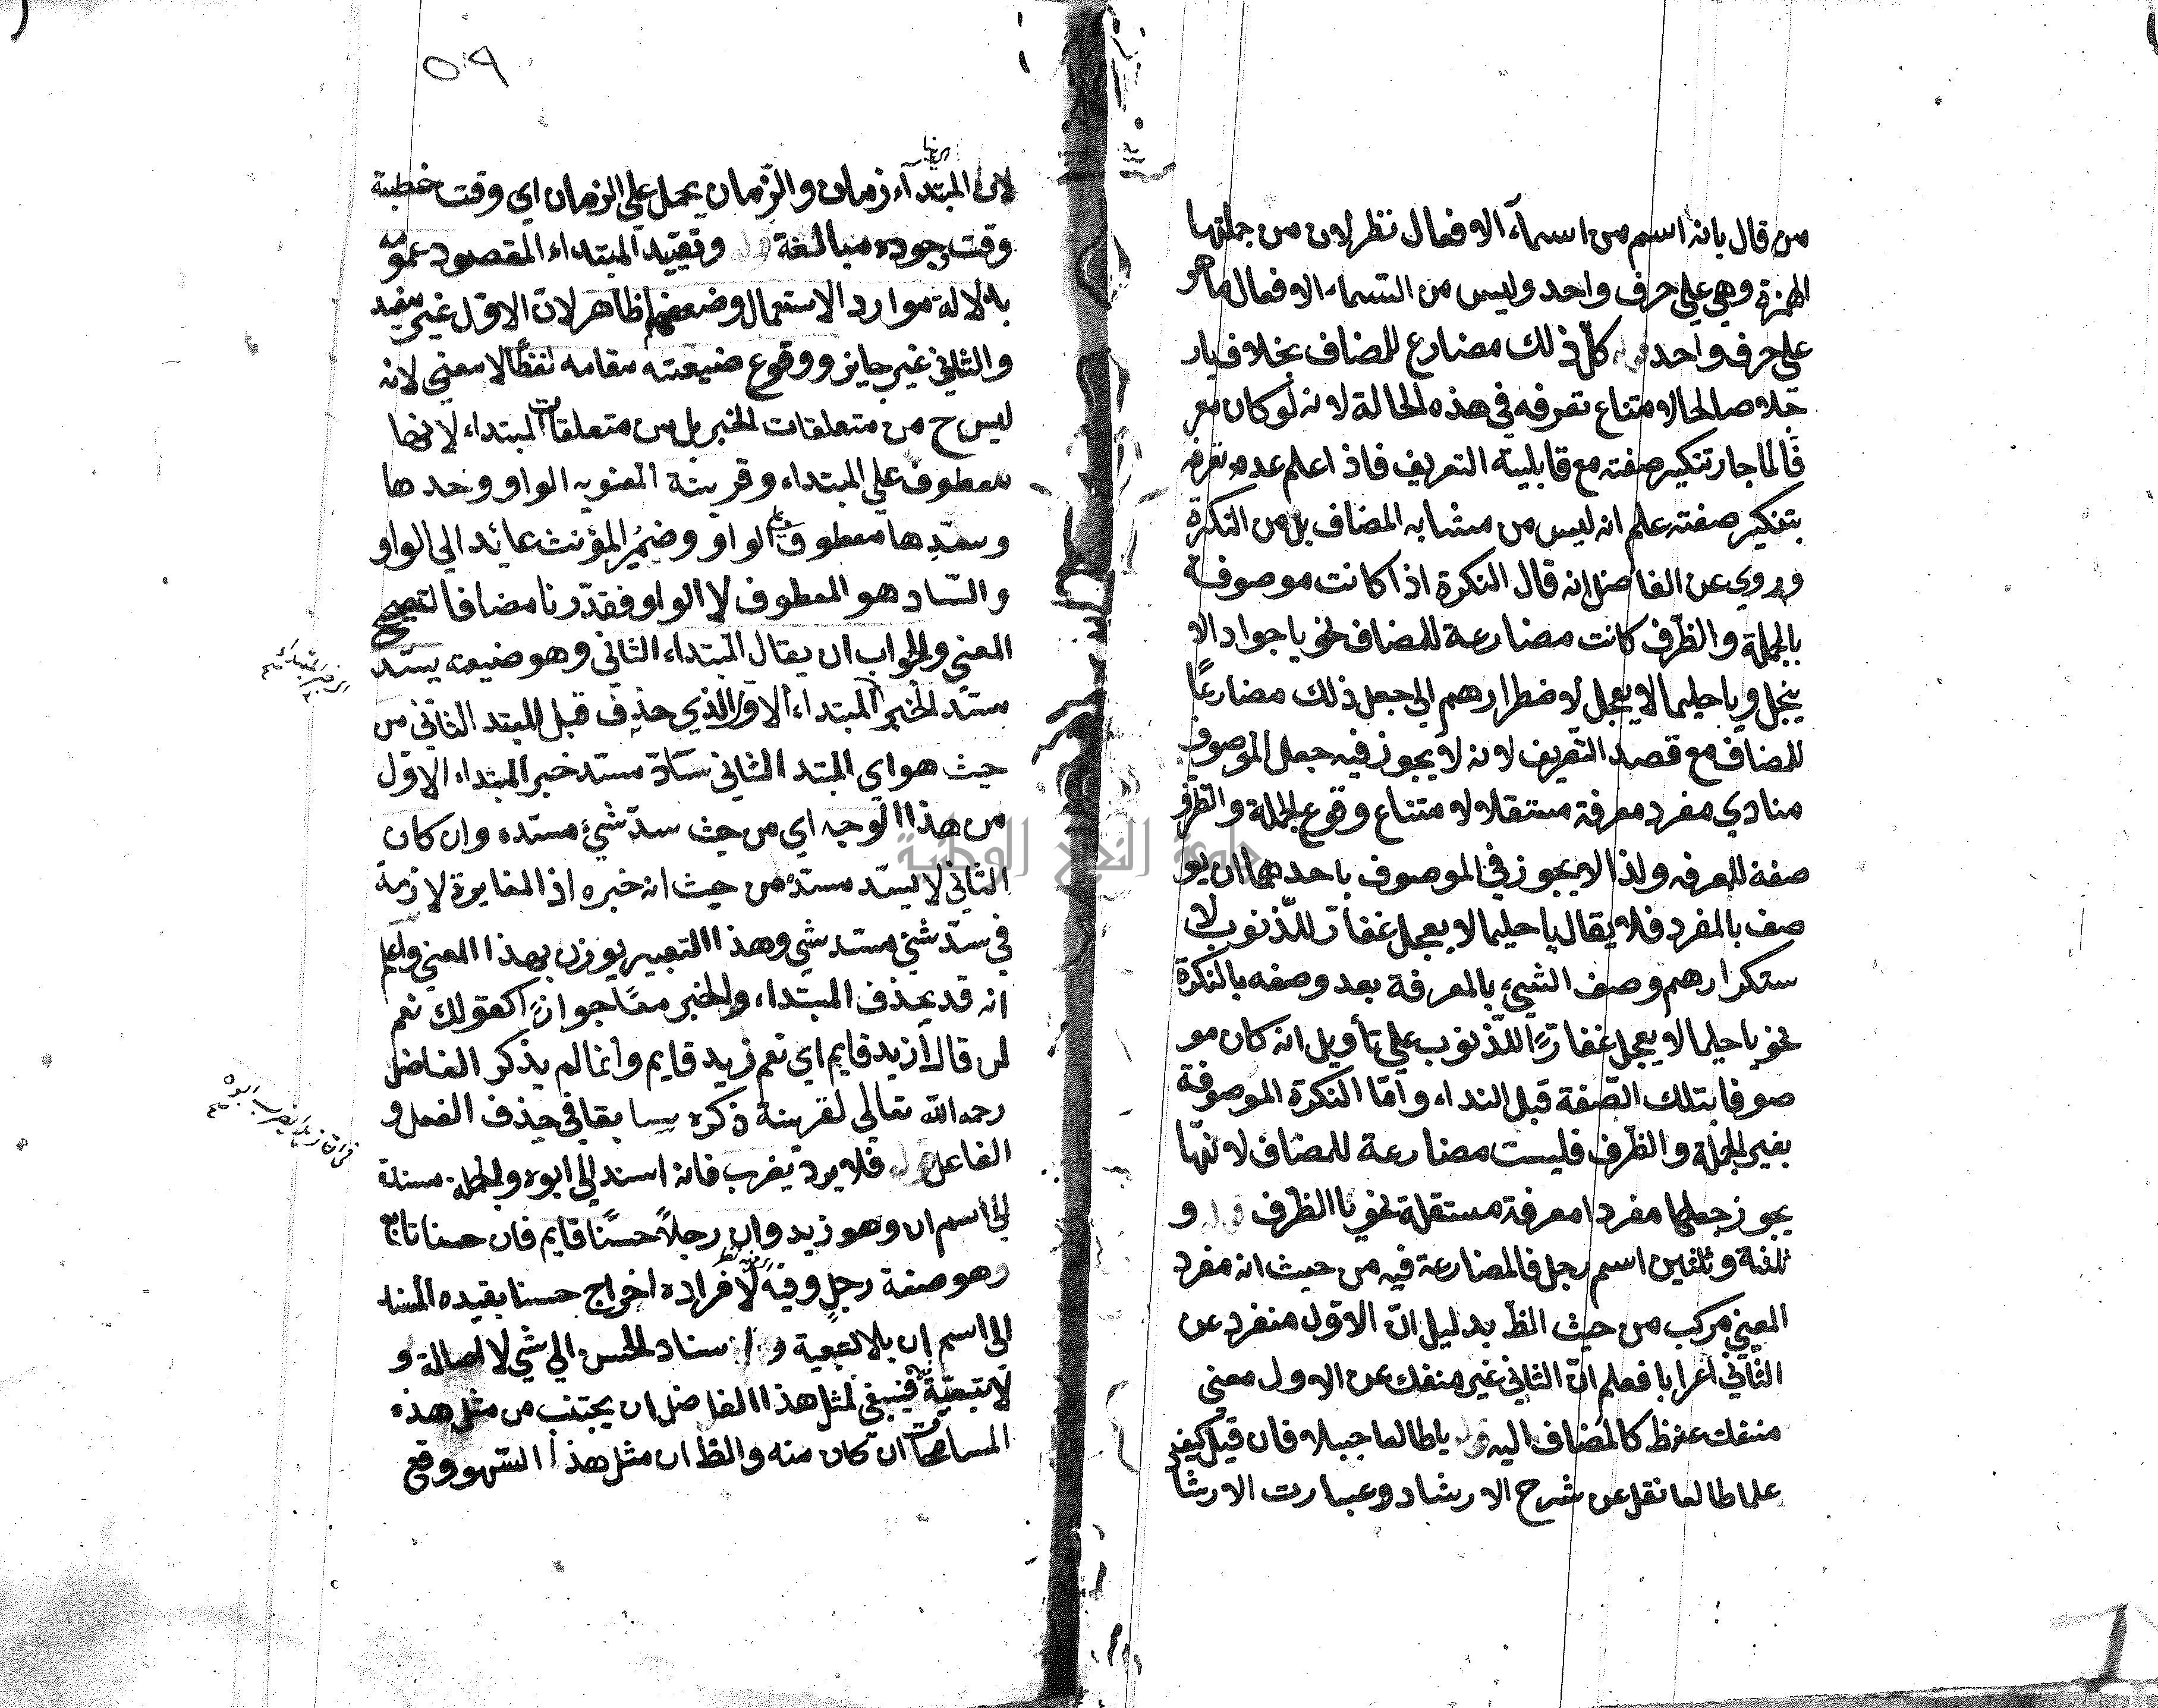 من قال بانه اسم من اسمآء الافعال نظر لان من جملتها
الهمزة وهي علي حرف واحد وليس من اسماء الافعال ما هو
علي حرف واحد قوله كل ذلك مضارع للمضاف بخلاف يار
جلا صالحا لامتناع تعرفه في هذه الحالة لانه لو كان معر
فا لما جاز تنكير صفته مع قابلية التعريف فاذا علم عدم تعرفه
بتنكير صفته علم انه ليس من مشابه المضاف بل من النكرة
وروي عن الفاضل انه قال النكرة اذا كانت موصوفة
بالجملة والظرف كانت مضارعة للمضاف نحو يا جواد الا
يبخل ويا حليما لا يعجل لاضطرارهم الي جعل ذلك مضارعًا
للمضاف مع قصد التعريف لانه لا يجوز فيه جعل الموصوف
منادي مفرد معرفة مستقلا لامتناع وقوع الجملة والظرف
صفة للمعرفه ولذا لا يجوز في الموصوف باحدهما ان يو
صف بالمفرد فلا يقال يا حليما لا يعجل غفار للذنوب لا
ستكرارهم وصف الشيء بالمعرفة بعد وصفه بالنكرة
نحو يا حليما لا يعجل غفارًا للذنوب علي تأويل انه كان مو
صوفا بتلك الصفة قبل النداء واما النكرة الموصوفة
بغير الجملة والظرف فليست مضارعة للمضاف لانها
يجوز جعلها مفردا معرفة مستقلة نحو يا الظرف قوله و
ثلثة وثلثين اسم رجل فالمضارعة فيه من حيث انه مفرد
المعني مركب من حيث اللفظ بدليل ان الاول منفرد عن
الثاني اعرابا فعلم ان الثاني غير منفك عن الاول معني
منفك عنه كالمضاف اليه قوله يا طالعا جبلا فان قيل كيف
علما طالعا نقل عن شرح الارشاد وعبارت الارشا
٥٩
لان المبتدآء زمان والزمان يحمل علي الزمان اي وقت خطبة
وقت وجوده مبالغة قوله وتقييد المبتداء المقصود عمومه
بدلالة موارد الاستعمال وضعفهما ظاهر لان الاول غير مفيد
والثاني غير جايز ووقوع ضيعته مقامه لفظًا لا معني لانه
ليس ح من متعلقات الخبر بل من متعلقات المبتداء لانها
معطوف علي المبتداء وقرينة المعنويه الواو وحدها
وسدها معطوف الواو وضمير المؤنث عائد الي الواو
والساد هو المعطوف لا الواو فقدرنا مضافا لتصحيح
المعني والجواب ان يقال المبتداء الثاني وهو ضيعته يسد
مسد الخبر المبتداء الاول الذي حذف قبل المبتد الثاني من
حيث هو اي المبتد الثاني ساد مسد خبر المبتداء الاول
من هذا الوجه اي من حيث سد شيء مسده وان كان
الثاني لا يسد مسده من حيث انه خبره اذ المغايرة لازمة
في سد شيء مسد شي وهذا التعبير يوزن بهذا المعني واعلم
انه قد يحذف المبتداء والخبر معًا جوازًا كقولك نعم
لمن قال أزيد قايم اي نعم زيد قايم وانما لم يذكر الفاضل
رحمه الله تعالي لقرينة ذكره سابقا في حذف الفعل و
الفاعل قوله فلا يرد يضرب فانه اسند الي ابوه والجملة مسندة
الي اسم ان وهو زيد وان رجلاً حسنًا قايم فان حسنا تابع
وهو صفة رجل وفيه لافراده اخراج حسنا بقيده المسند
الي اسم ان بلا تبعية و اسناد الحسن الي شي لا اصالة و
لا تبعية فينبغي لمثل هذا الفاضل ان يجتنب من مثل هذه
المسامحات ان كان منه والظ ان مثل هذا السهو وقع